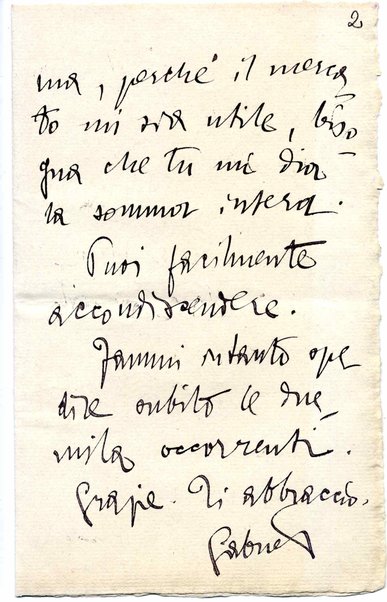 2
ma, perché il merca-
to mi sia utile, biso-
gna che tu mi dia
la somma intera.
Puoi facilmente
accondiscendere.
Fammi intanto spe-
dire subito le due-
mila occorrenti.
Grazie. Ti abbraccio.
Gabriel